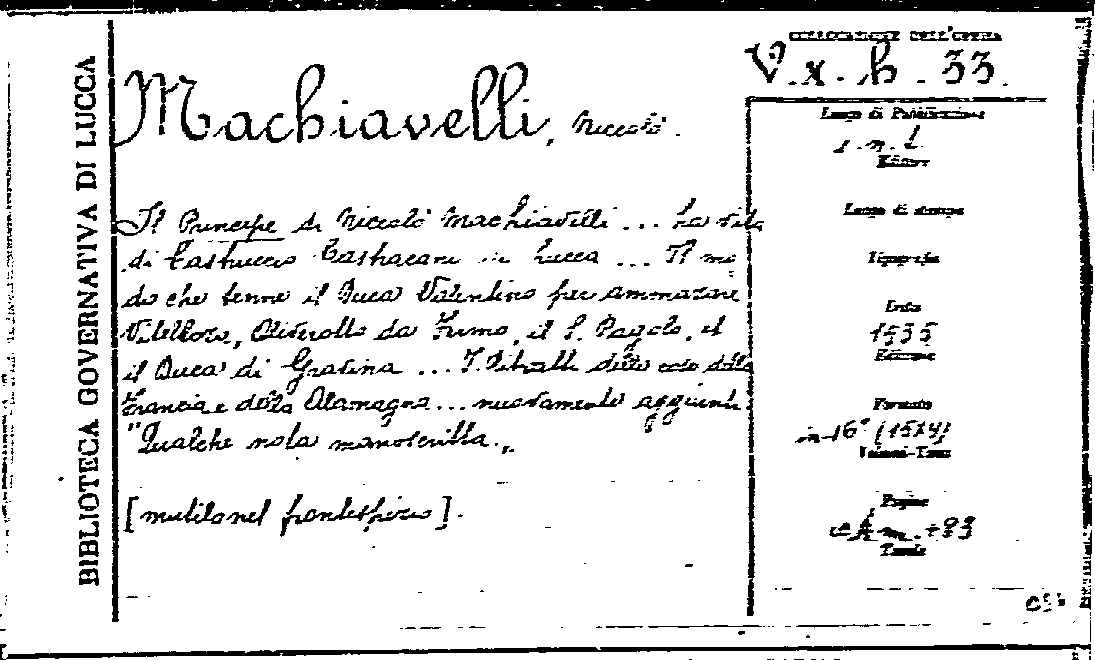 BIBLIOTECA GOVERNATIVA DI LUCCA
COLLOCAZIONE DELL'OPERA
V. x. h. 33.
Machiavelli, Niccolò.
Il Principe di Niccolò Machiavelli ... La vita
di Castruccio Castracani in Lucca ... Il mo
do che tenne il Duca Valentino per ammazare
Vitellozo, Oliverotto da Fermo, il S. Pagolo, et
il Duca di Gravina ... I Ritratti delle cose della
Francia e della Alamagna... nuovamente aggiunti.
"Qualche nota manoscritta."
[mutilo nel frontespizio].
Luogo di Pubblicazione
s. n. t.
Editore
Luogo di stampa
Tipografia
Data
1535
Edizione
Formato
in-16° (15X4)
Volumi-Tomi
Pagine
83
Tavole